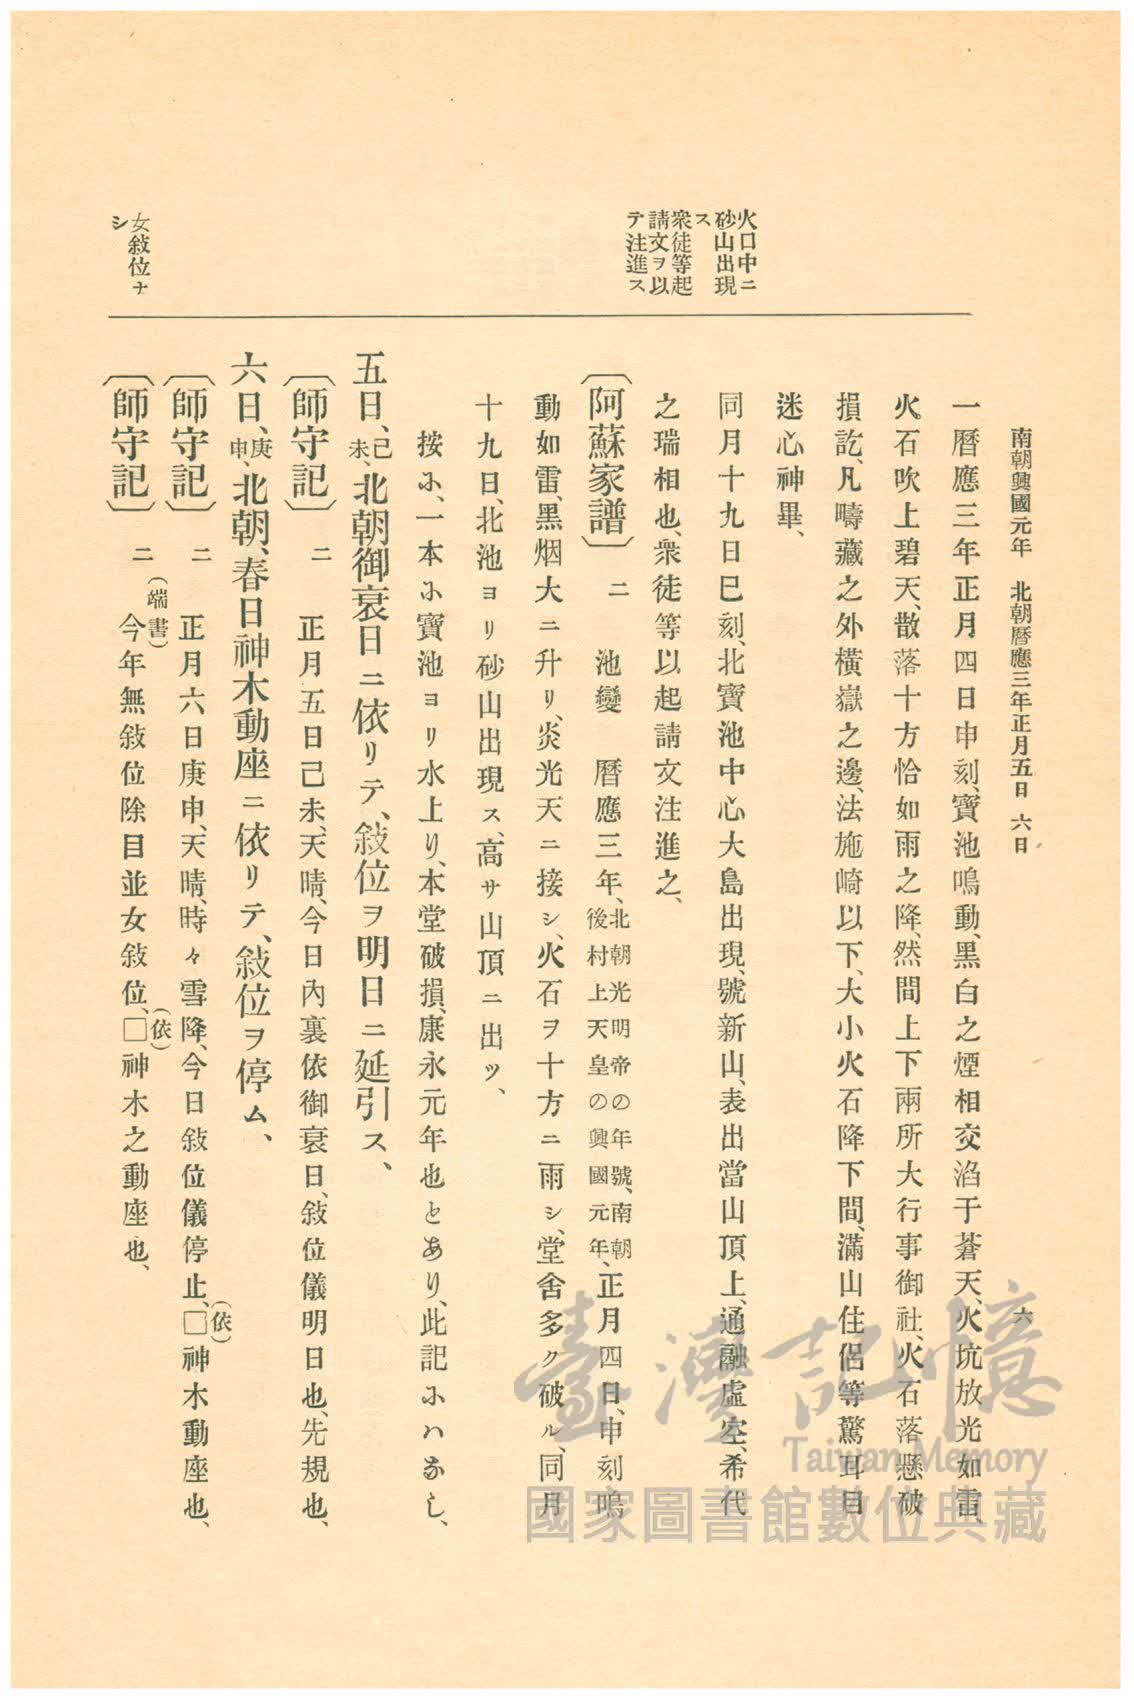 南朝興國元年　北朝曆應三年正月五日　六日
六
火口中ニ
砂山出現
ス
衆徒等起
請文ヲ以
テ注進ス
女敍位ナ
シ
一曆應三年正月四日申刻、寶池鳴動、黑白之煙相交滔于蒼天、火坑放光如雷、
火石吹上碧天、散落十方恰如雨之降、然間上下兩所大行事御社、火石落懸破
損訖、凡疇藏之外橫嶽之邊、法施崎以下、大小火石降下間、滿山住侶等驚耳目
迷心神畢、
同月十九日巳刻、北寶池中心大島出現、號新山、表出當山頂上、通融虛空、希代
之瑞相也、衆徒等以起請文注進之、
〔阿蘇家譜〕二　池變　曆應三年、北朝光明帝の年號、南朝後村上天皇の興國元年、正月四日、申刻鳴
動如雷、黑烟大ニ升リ、炎光天ニ接シ、火石ヲ十方ニ雨シ、堂舍多ク破ル、同月
十九日、北池ヨリ砂山出現ス、高サ山頂ニ出ツ、
按ニ、一本ニ寶池ヨリ水上り、本堂破損、康永元年也とあり、此記ニハなし、
五日、己未、北朝御衰日ニ依リテ、敍位ヲ明日ニ延引ス、
〔師守記〕二　正月五日己未、天晴、今日內裏依御衰日、敍位儀明日也、先規也、
六日、庚申、北朝、春日神木動座ニ依リテ、敍位ヲ停ム、
〔師守記〕二　正月六日庚申、天晴、時々雪降、今日敍位儀停止、□(依)神木動座也、
〔師守記〕二　(端書)今年無敍位除目並女敍位、□(依)神木之動座也、
臺灣記憶
Taiwan Memory
國家圖書館數位典藏